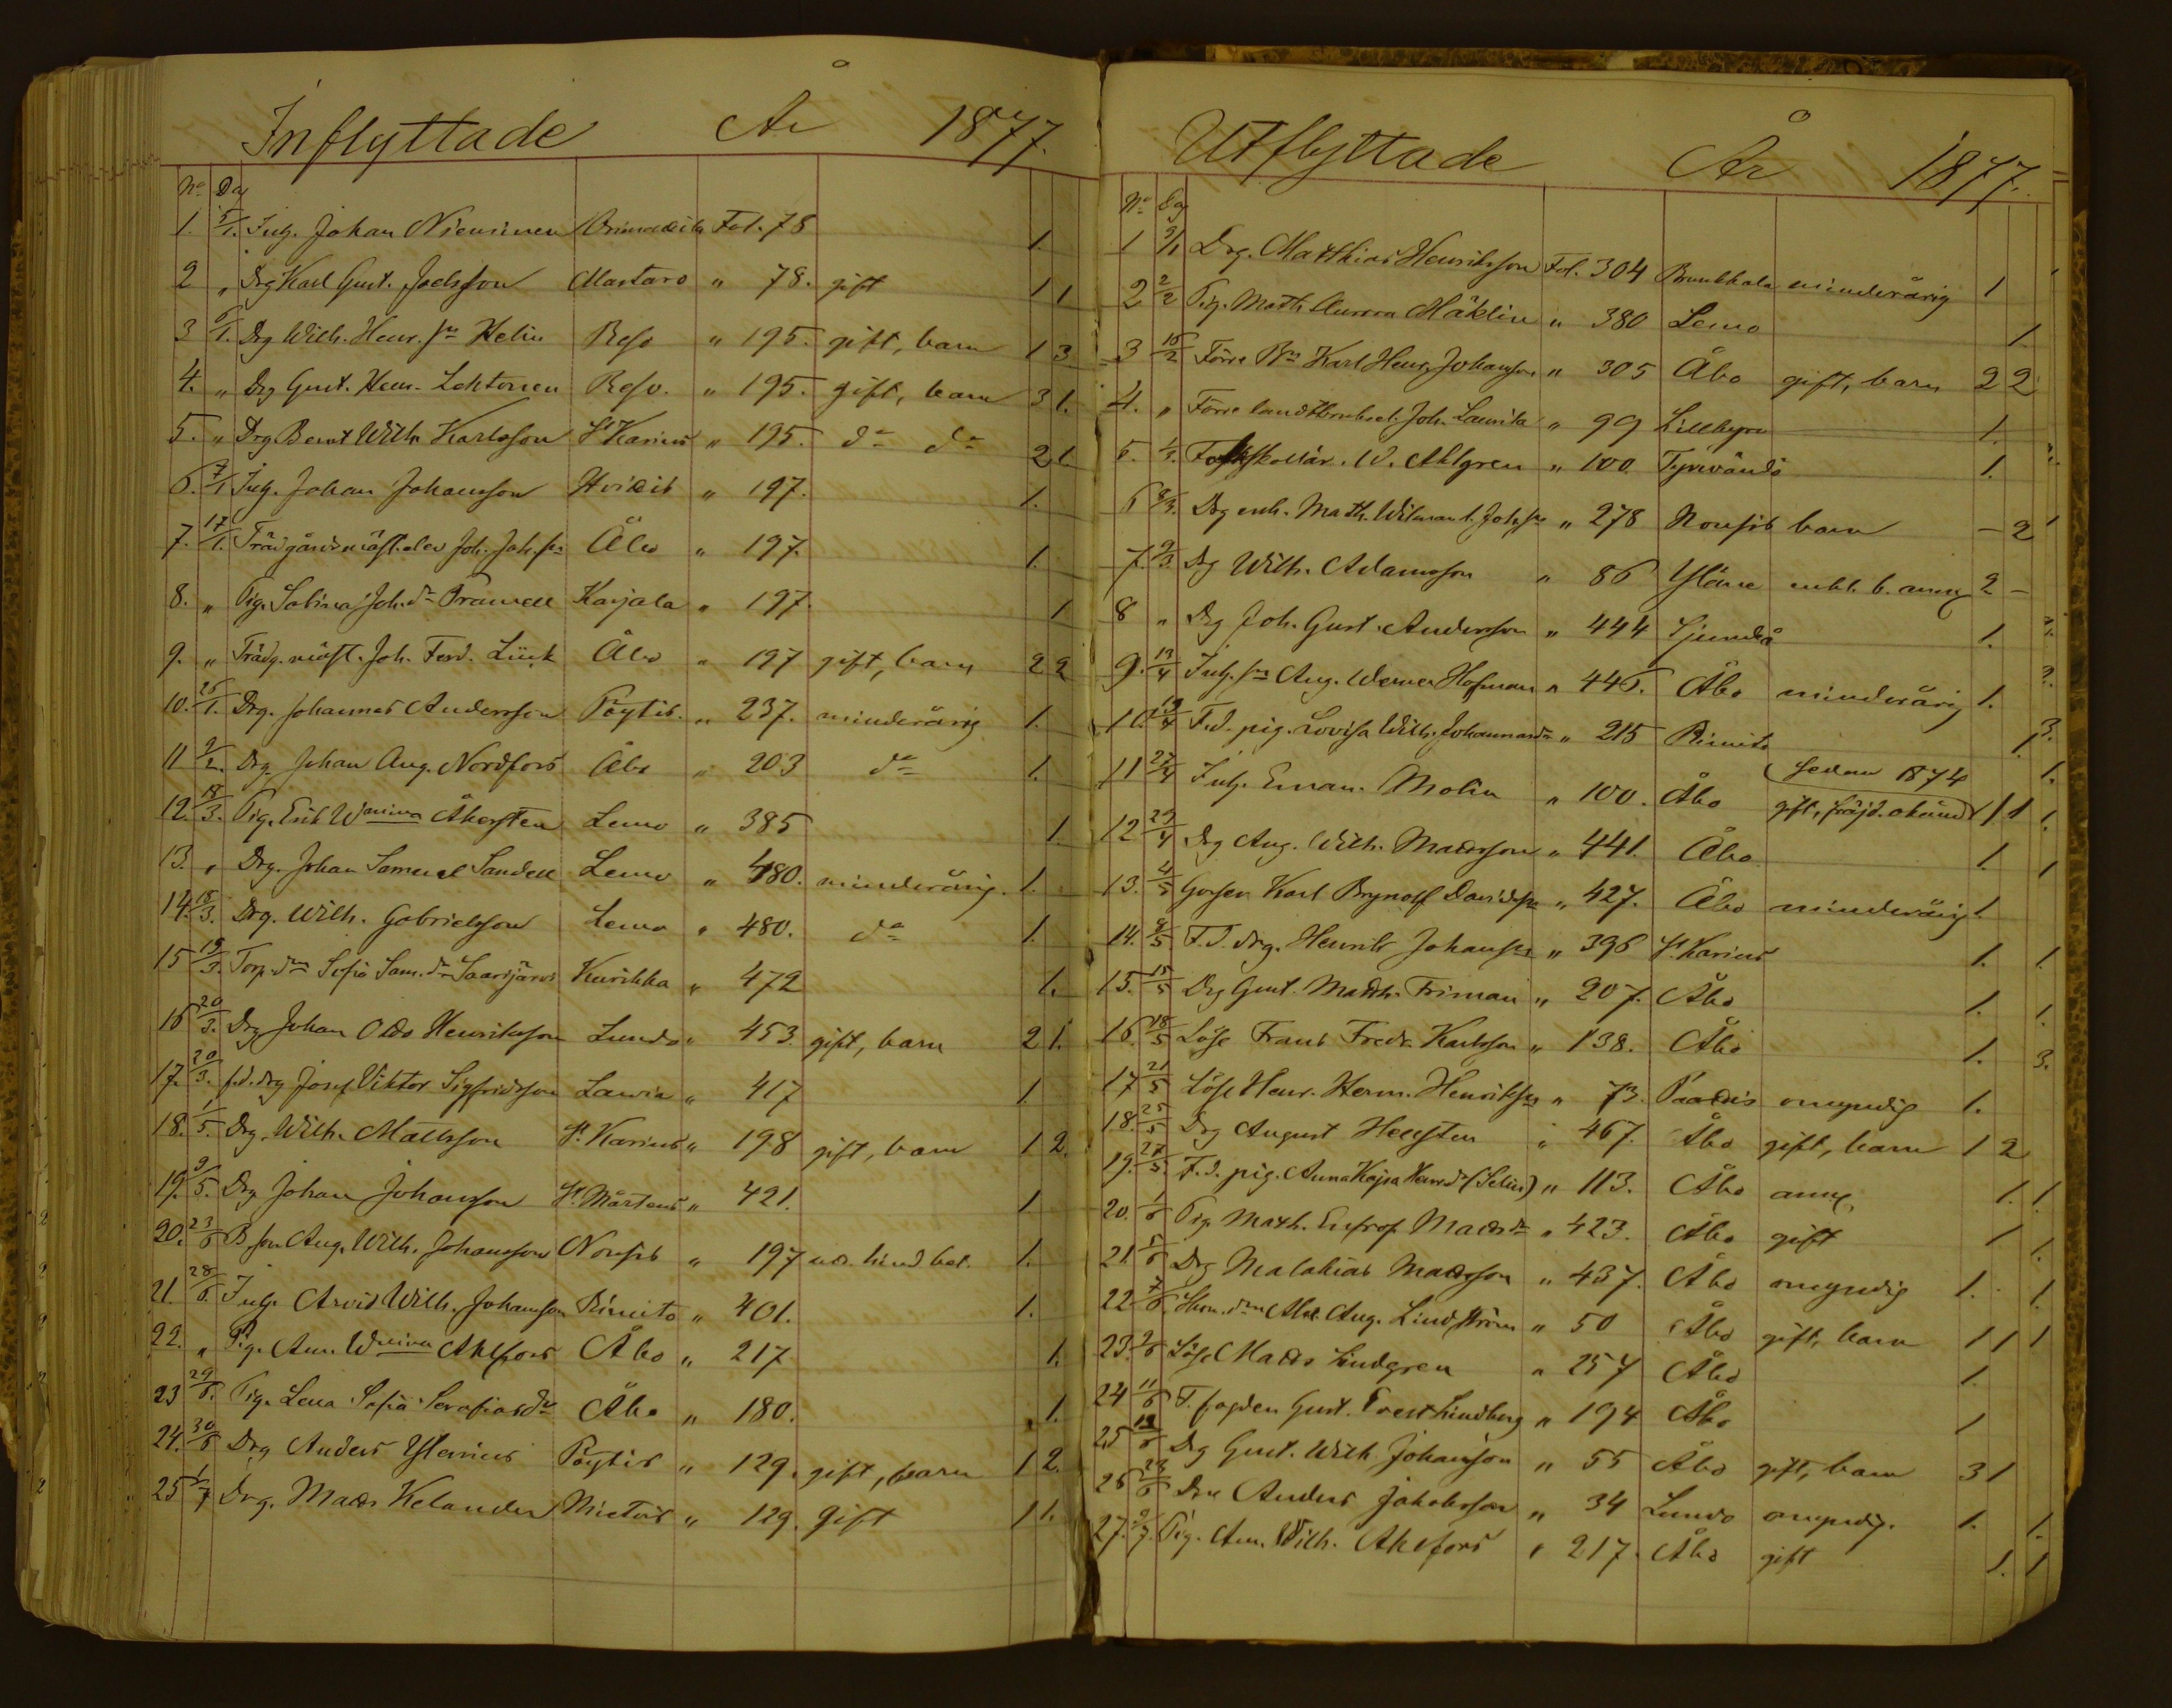 Inflyttade År 1877.
No Dag
1. 5/1. Inh. Johan Nieminen Fol. 78 1.
2 " Drg Karl Gust. Joelsson " 78. gift 1 1
3 6/1. Drg Wilh. Henr. sn Helin Reso " 195. gift, barn 1 3
4. " Drg Gust. Henr. Lehtonen Reso. " 195. gift, barn 3 1.
5. " Drg Bernt Wilh. Karlsson St Karins " 195. do do 2 1.
6. 7/1 Inh. Johan Johansson Hvidis " 197. 1.
7. 17/1. Trädgårdsmäst. elev Joh. Joh. sn Åbo " 197. 1.
8. " Pig. Sabina Joh. dr Karjala " 197. 1
9. " Trädg. mäst. Joh. Ferd. Lück Åbo " 197 gift, barn 2 2
10. 25/1. Drg. Johannes Andersson Pöytis. " 237. minderårig 1.
11 2/2. Drg Johan Aug. Nordfors Åbo " 203 do 1.
12. 18/3. Pig. Erik Åkersten Lemo " 385 1.
13. " Drg. Johan Samuel Sandell Lemo " 480. minderårig. 1.
14. 18/3. Drg. Wilh. Gabrielsson Lemo " 480. do 1.
15 19/3. Torp. dr Sofia Sam. dr Saarijärvi Kurikka " 472 1.
16 20/3. Drg Johan Otto Henriksson Lundo " 453. gift, barn 2 1.
17. 20/3. f.d. drg Josef Viktor Sigfridsson " 417 1
18. 1/5. Drg. Wilh. Mattsson St Karins " 198 gift, barn 1 2.
19. 9/5. Drg Johan Johansson St Mårtens " 421. 1
20. 23/6 B. son Aug. Wilh. Johansson Nousis " 197 1.
21. 28/6. Inh. Arvid Wilh. Johansson Rimito " 401. 1.
22. " Pig. Am. Ahlfors Åbo " 217 1.
23 29/6. Pig. Lena Sofia Serafiasdr Åbo " 180. 1.
24. 30/6 Drg Anders Ylenius Pöytis " 129. gift, barn 1 2.
25 1/7 Drg. Matts Kelander Mietois " 129. gift 1 1.
Utflyttade År 1877.
No Dag
1 9/1 Drg. Matthias Henriksson Fol. 304 Brunkkala minderårig 1
2 2/2 Pig. Math. Aurora Mäklin " 380 Lemo 1
3 16/2 Förre Bn Karl Henr. Johansson " 305 Åbo gift, barn 2 2
4. " Förre landtbruksel. Joh. Laurila " 99 Lillkyro 1.
5. 1/3. Folkskollär. W. Ahlgren " 100 Tyrvändö 1.
6 8/3. Drg enk. Math. Wilmar t. Joh. sn " 278 Nousis barn – 2
7. 9/3. Drg Wilh. Adamsson " 86 Yläne enkl. b. anm 2 –
8 " Drg Joh. Gust. Andersson " 444 Sjundeå 1.
9. 13/4 Inh. sn Aug. Werner Hofman " 446. Åbo minderårig 1.
10. 19/4 F.d. pig. Lovisa Wilh. Johannesdr " 215 Rimito 1.
11 27/4 Inh. Eman. Molin " 100. Åbo (sedan 1874 gift, fräjd. okänd) 1 1
12 29/4 Drg Aug. Wilh. Mattsson " 441. Åbo 1
13. 4/5 Gossen Karl Brynolf Davidssn " 427. Åbo minderårig 1
14. 9/5 F.d. drg. Henrik Johanssn " 396 St Karins 1.
15. 15/5 Drg Gust. Matth. Friman " 207. Åbo 1.
16. 18/5 Löse Frans Fredr. Karlsson " 138. Åbo 1.
17 21/5 Löse Henr. Herm. Henrikssn " 73. Paattis omyndig 1.
18. 25/5 Drg August Hellsten " 467. Åbo gift, barn 1 2
19. 27/5. F.d. pig. Anna Kajsa Henrdr (Selin) " 113. Åbo anm. 1.
20. 1/6 Pig Math. Eufros. Mattsdr " 423. Åbo gift 1
21. 5/6 Drg Malakias Mattsson " 437. Åbo omyndig 1.
22. 7/6. Aug. Lindström " 50 Åbo gift, barn 1 1
23. 9/6 Löse Matts Lindgren " 257 Åbo 1.
24 11/6 F. fogden Gust. Evert Lindberg " 194 Åbo 1
25 19/6 Drg Gust. Wilh Johansson " 55 Åbo gift, barn 3 1
26 23/6 Drn Anders Jakobsson " 34 Lundo omyndig. 1.
27. 2/7. Pig. Am. Wilh. Ahlfors " 217. Åbo gift 1.